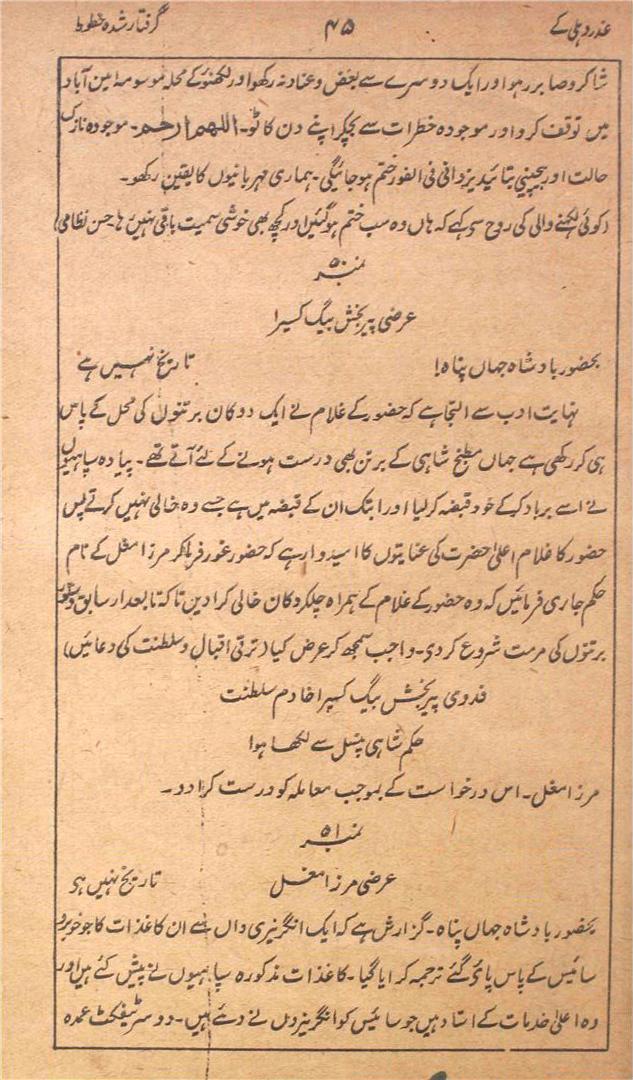 غدر دہلی کے ۴۵ گرفتار شدہ خطوط
شاکر و صابر رہو اور ایک دوسرے سے بغض و عناد نہ رکھو اور لکھنؤ کے محلہ موسومہ امین آباد
میں توقف کرو اور موجودہ خطرات سے بچکر اپنے دن کاٹو۔ اللهم ارحم۔ موجودہ نازک
حالت اور بیچینی بتائید یزدانی فی الفور ختم ہو جائیگی۔ ہماری مہربانیوں کا یقین رکھو۔
(کوئی لکھنے والی کی روح سے کہے کہ ہاں وہ سب ختم ہو گئیں اور کچھ بھی خوشی سمیت باقی نہیں رہا۔ حسن نظامی)
نمبر ۵۰
عرضی پیر بخش بیگ کسیرا
بحضور بادشاہ جہاں پناہ! تاریخ نہیں ہے
نہایت ادب سے التجا ہے کہ حضور کے غلام نے ایک دوکان برتنوں کی محل کے پاس
ہی کر رکھی ہے جہاں مطبخ شاہی کے برتن بھی درست ہونے کے لئے آتے تھے۔ پیادہ سپاہیوں
نے اسے برباد کر کے خود قبضہ کر لیا اور ابتک ان کے قبضہ میں ہے جسے وہ خالی نہیں کرتے پس
حضور کا غلام اعلیٰ حضرت کی عنایتوں کا امیدوار ہے کہ حضور غور فرما کر مرزا مغل کے نام
حکم جاری فرمائیں کہ وہ حضور کے غلام کے ہمراہ چلکر دکان خالی کرا دیں تاکہ تابعدار سابق دستور
برتنوں کی مرمت شروع کر دی۔ واجب سمجھ کر عرض کیا (ترقی اقبال و سلطنت کی دعائیں)
فدوی پیر بخش بیگ کسیرا خادم سلطنت
حکم شاہی پنسل سے لکھا ہوا
مرزا مغل۔ اس درخواست کے بموجب معاملہ کو درست کرا دو۔
نمبر ۵۱
عرضی مرزا مغل تاریخ نہیں ہی
بحضور بادشاہ جہاں پناہ۔ گزارش ہے کہ ایک انگریزی داں سے ان کاغذات کا جو خیرو
سائیس کے پاس پائی گئے ترجمہ کرایا گیا۔ کاغذات مذکورہ سپاہیوں نے پیش کئے ہیں اور
وہ اعلیٰ خدمات کے اسناد ہیں جو سائیس کو انگریزوں نے دئے ہیں۔ دو سرٹیفکٹ عمدہ